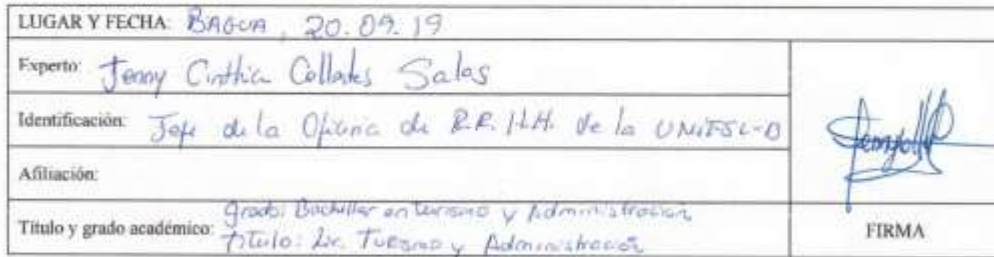 LUGAR Y FECHA: BAGUA, 20.09.19
Experto: Jenny Cinthia Collantes Salas
Identificación: Jefe de la Oficina de R.R.H.H. de la UNIFSL-B
Afiliación:
Título y grado académico: Grado: Bachiller en turismo y Administración
Título: Lic. Turismo y Administración
FIRMA